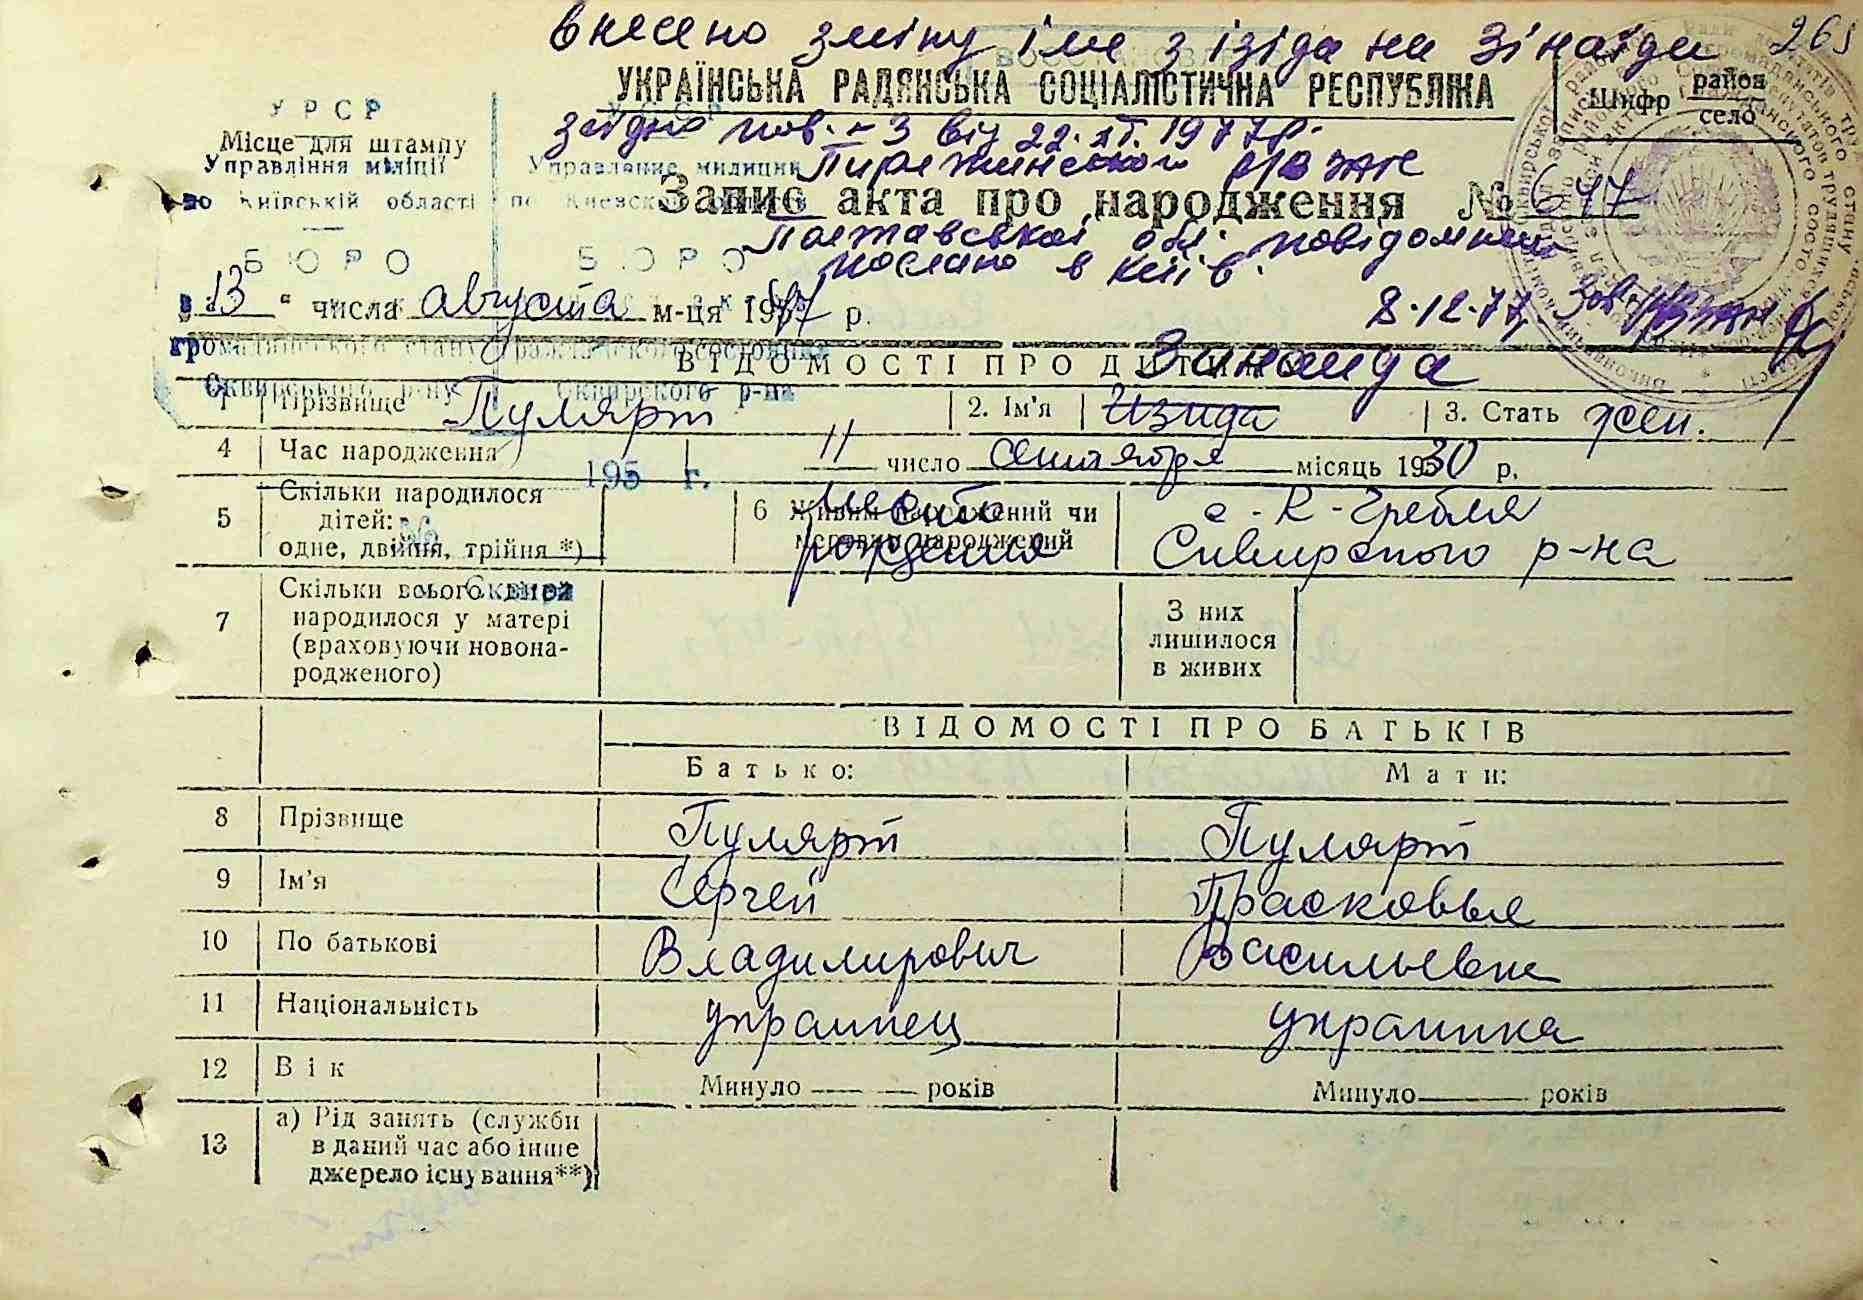 внесено зміну імя з ізіда на Зінаїда 269
УКРАЇНСЬКА РАДЯНСЬКА СОЦІАЛІСТИЧНА РЕСПУБЛІКА
Шифр район село
УРСР
Місце для штампу
згідно пов. 3 від 22. XI. 1977 р.
Управління міліції Управление милиции
по Київській області по Киевской области
Запис акта про народження № 647
Полтавської обл. повідомлен
послано в Київ.
БЮРО БЮРО
"13" числа августа м-ця 19 р.
8.12.77
громадянського стану гражданского состояния
Сквирського р-ну Сквирского р-на
ВІДОМОСТІ ПРО ДИТИНУ
Зинаида
1 Прізвище Пулярт 2. Ім'я Изида 3. Стать жен.
4 Час народження 11 число сентября місяць 1930 р.
195 г.
5 Скільки народилося дітей: одне, двійня, трійня *)
№
6 Живим народжений чи мертвим народжений
место рождения
с. К-Гребля
Сквирского р-на
7 Скільки всього народилося у матері (враховуючи новонародженого)
Сквира
З них лишилося в живих
ВІДОМОСТІ ПРО БАТЬКІВ
Батько: Мати:
8 Прізвище Пулярт Пулярт
9 Ім'я Сергей Прасковья
10 По батькові Владимирович Васильевна
11 Національність украинец украинка
12 Вік Минуло — років Минуло — років
13 а) Рід занять (служби в даний час або інше джерело існування**)